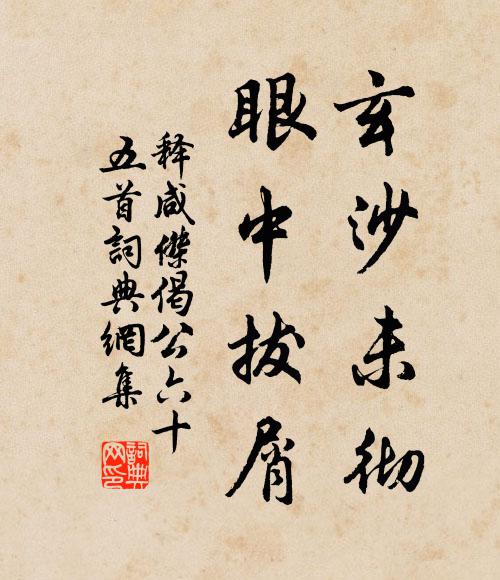 玄沙未彻
眼中拔屑
释咸傑偈公六十
五首詞典網集
詞典网印